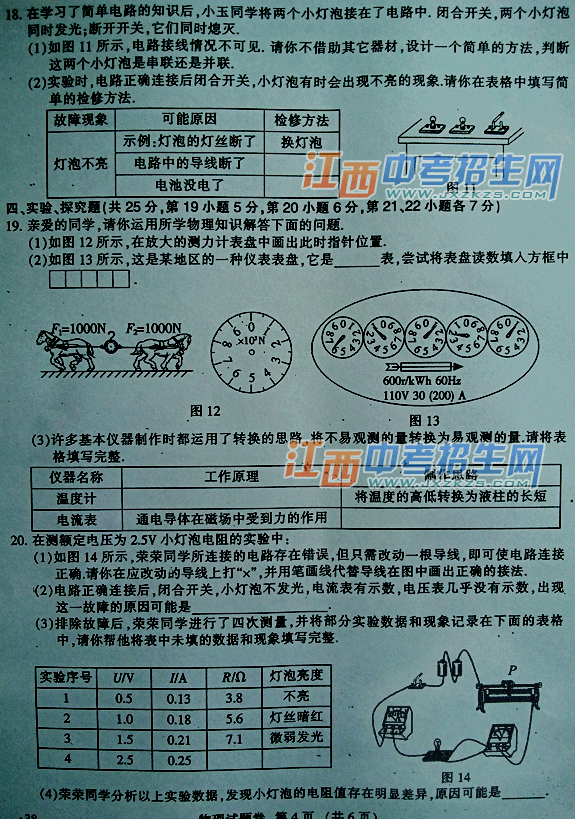 18. 在学习了简单电路的知识后,小玉同学将两个小灯泡接在了电路中.闭合开关,两个小灯泡
同时发光;断开开关,它们同时熄灭.
(1)如图 11 所示,电路接线情况不可见.请你不借助其它器材,设计一个简单的方法,判断
这两个小灯泡是串联还是并联.
(2)实验时,电路正确连接后闭合开关,小灯泡有时会出现不亮的现象.请你在表格中填写简
单的检修方法.
故障现象 可能原因 检修方法
灯泡不亮 示例:灯泡的灯丝断了 换灯泡
电路中的导线断了
电池没电了
图 11
江西中考招生网
www.jxzkzs.com
四、实验、探究题(共 25 分,第 19 小题 5 分,第 20 小题 6 分,第 21、22 小题各 7 分)
19. 亲爱的同学,请你运用所学物理知识解答下面的问题.
(1)如图 12 所示,在放大的测力计表盘中画出此时指针位置.
(2)如图 13 所示,这是某地区的一种仪表表盘,它是______表,尝试将表盘读数填入方框中
F₁=1000N F₂=1000N
×10³N
600r/kWh 60Hz
110V 30 (200) A
图 12
图 13
(3)许多基本仪器制作时都运用了转换的思路,将不易观测的量转换为易观测的量.请将表
格填写完整.
江西中考招生网
www.jxzkzs.com
仪器名称 工作原理 制作思路
温度计 将温度的高低转换为液柱的长短
电流表 通电导体在磁场中受到力的作用
20. 在测额定电压为 2.5V 小灯泡电阻的实验中:
(1)如图 14 所示,荣荣同学所连接的电路存在错误,但只需改动一根导线,即可使电路连接
正确.请你在应改动的导线上打“×”,并用笔画线代替导线在图中画出正确的接法.
(2)电路正确连接后,闭合开关,小灯泡不发光,电流表有示数,电压表几乎没有示数,出现
这一故障的原因可能是______.
(3)排除故障后,荣荣同学进行了四次测量,并将部分实验数据和现象记录在下面的表格
中,请你帮他将表中未填的数据和现象填写完整.
实验序号 U/V I/A R/Ω 灯泡亮度
1 0.5 0.13 3.8 不亮
2 1.0 0.18 5.6 灯丝暗红
3 1.5 0.21 7.1 微弱发光
4 2.5 0.25
P
图 14
(4)荣荣同学分析以上实验数据,发现小灯泡的电阻值存在明显差异,原因可能是______.
物理试题卷 第 4 页 (共 6 页)